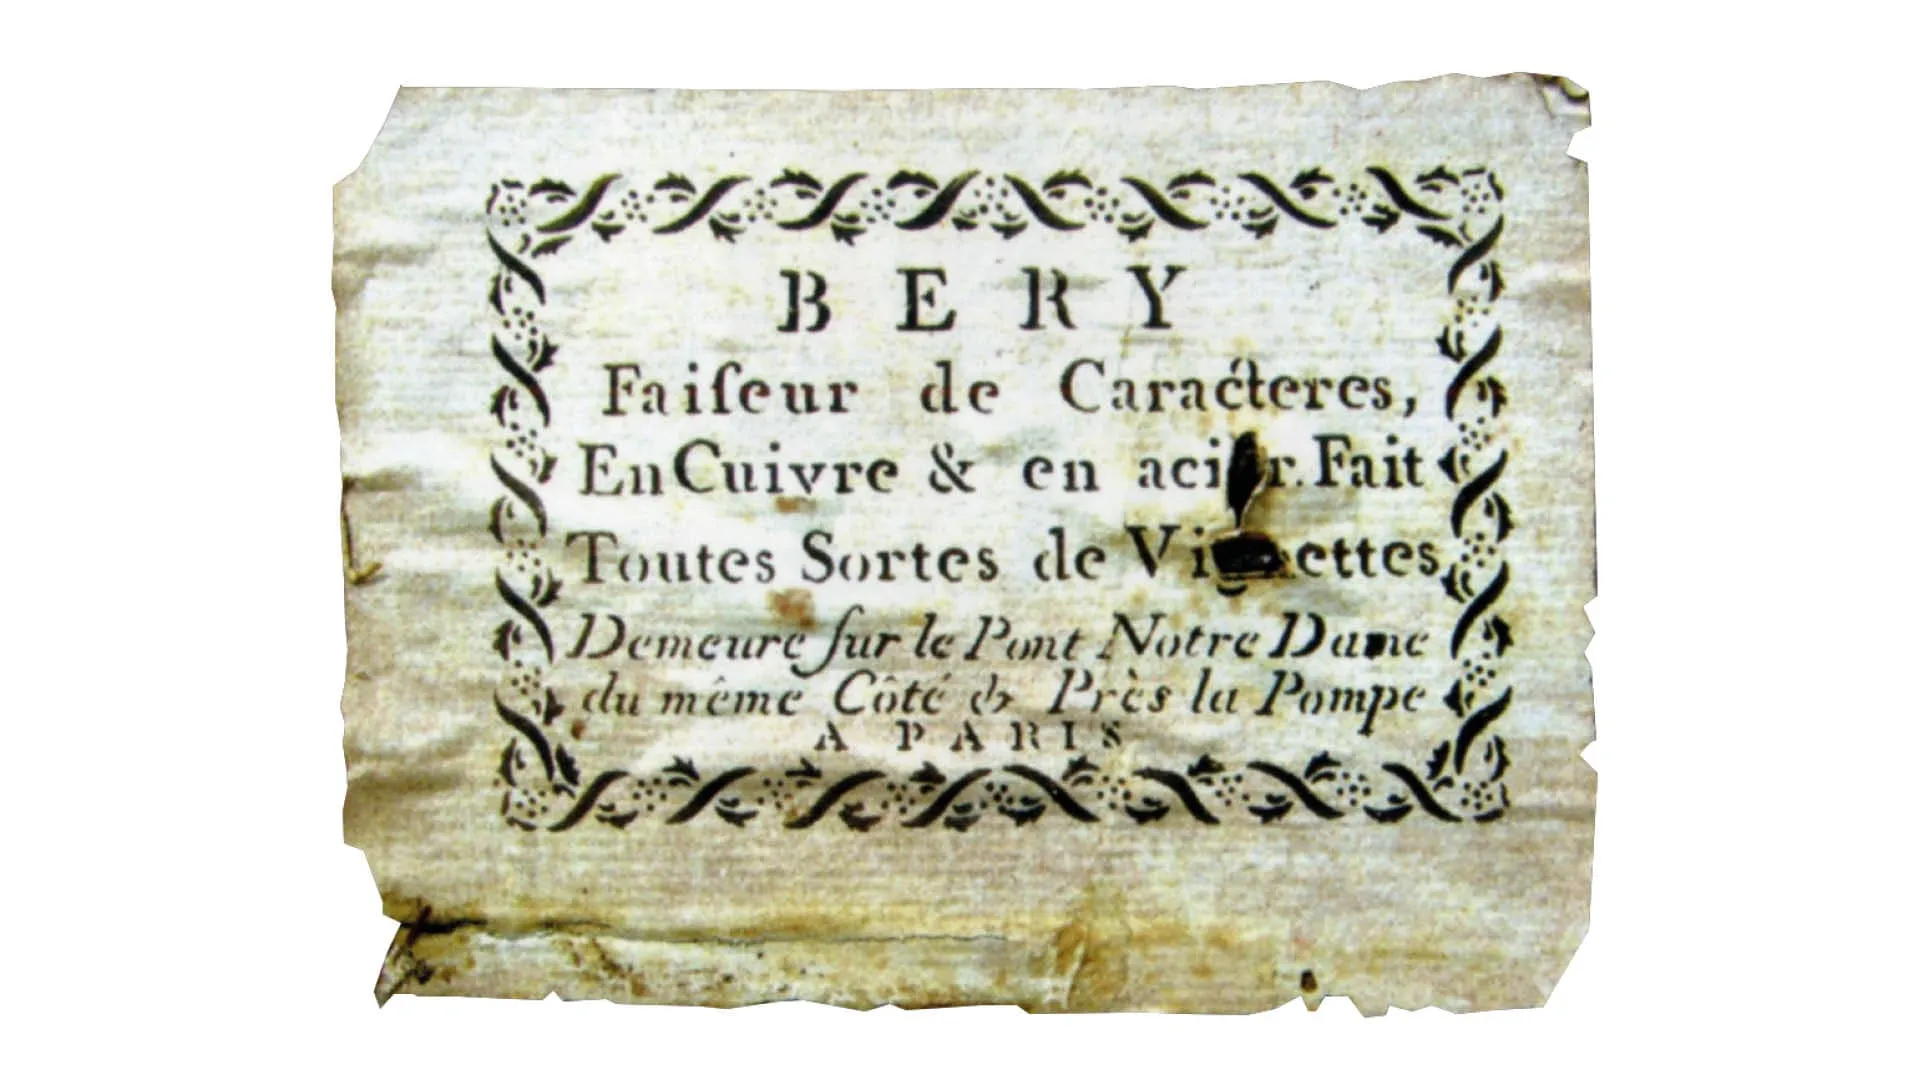 BERY
Faiſeur de Caracteres,
En Cuivre & en acier. Fait
Toutes Sortes de Vignettes,
Demeure ſur le Pont Notre Dame
du même Côté & Près la Pompe
A PARIS